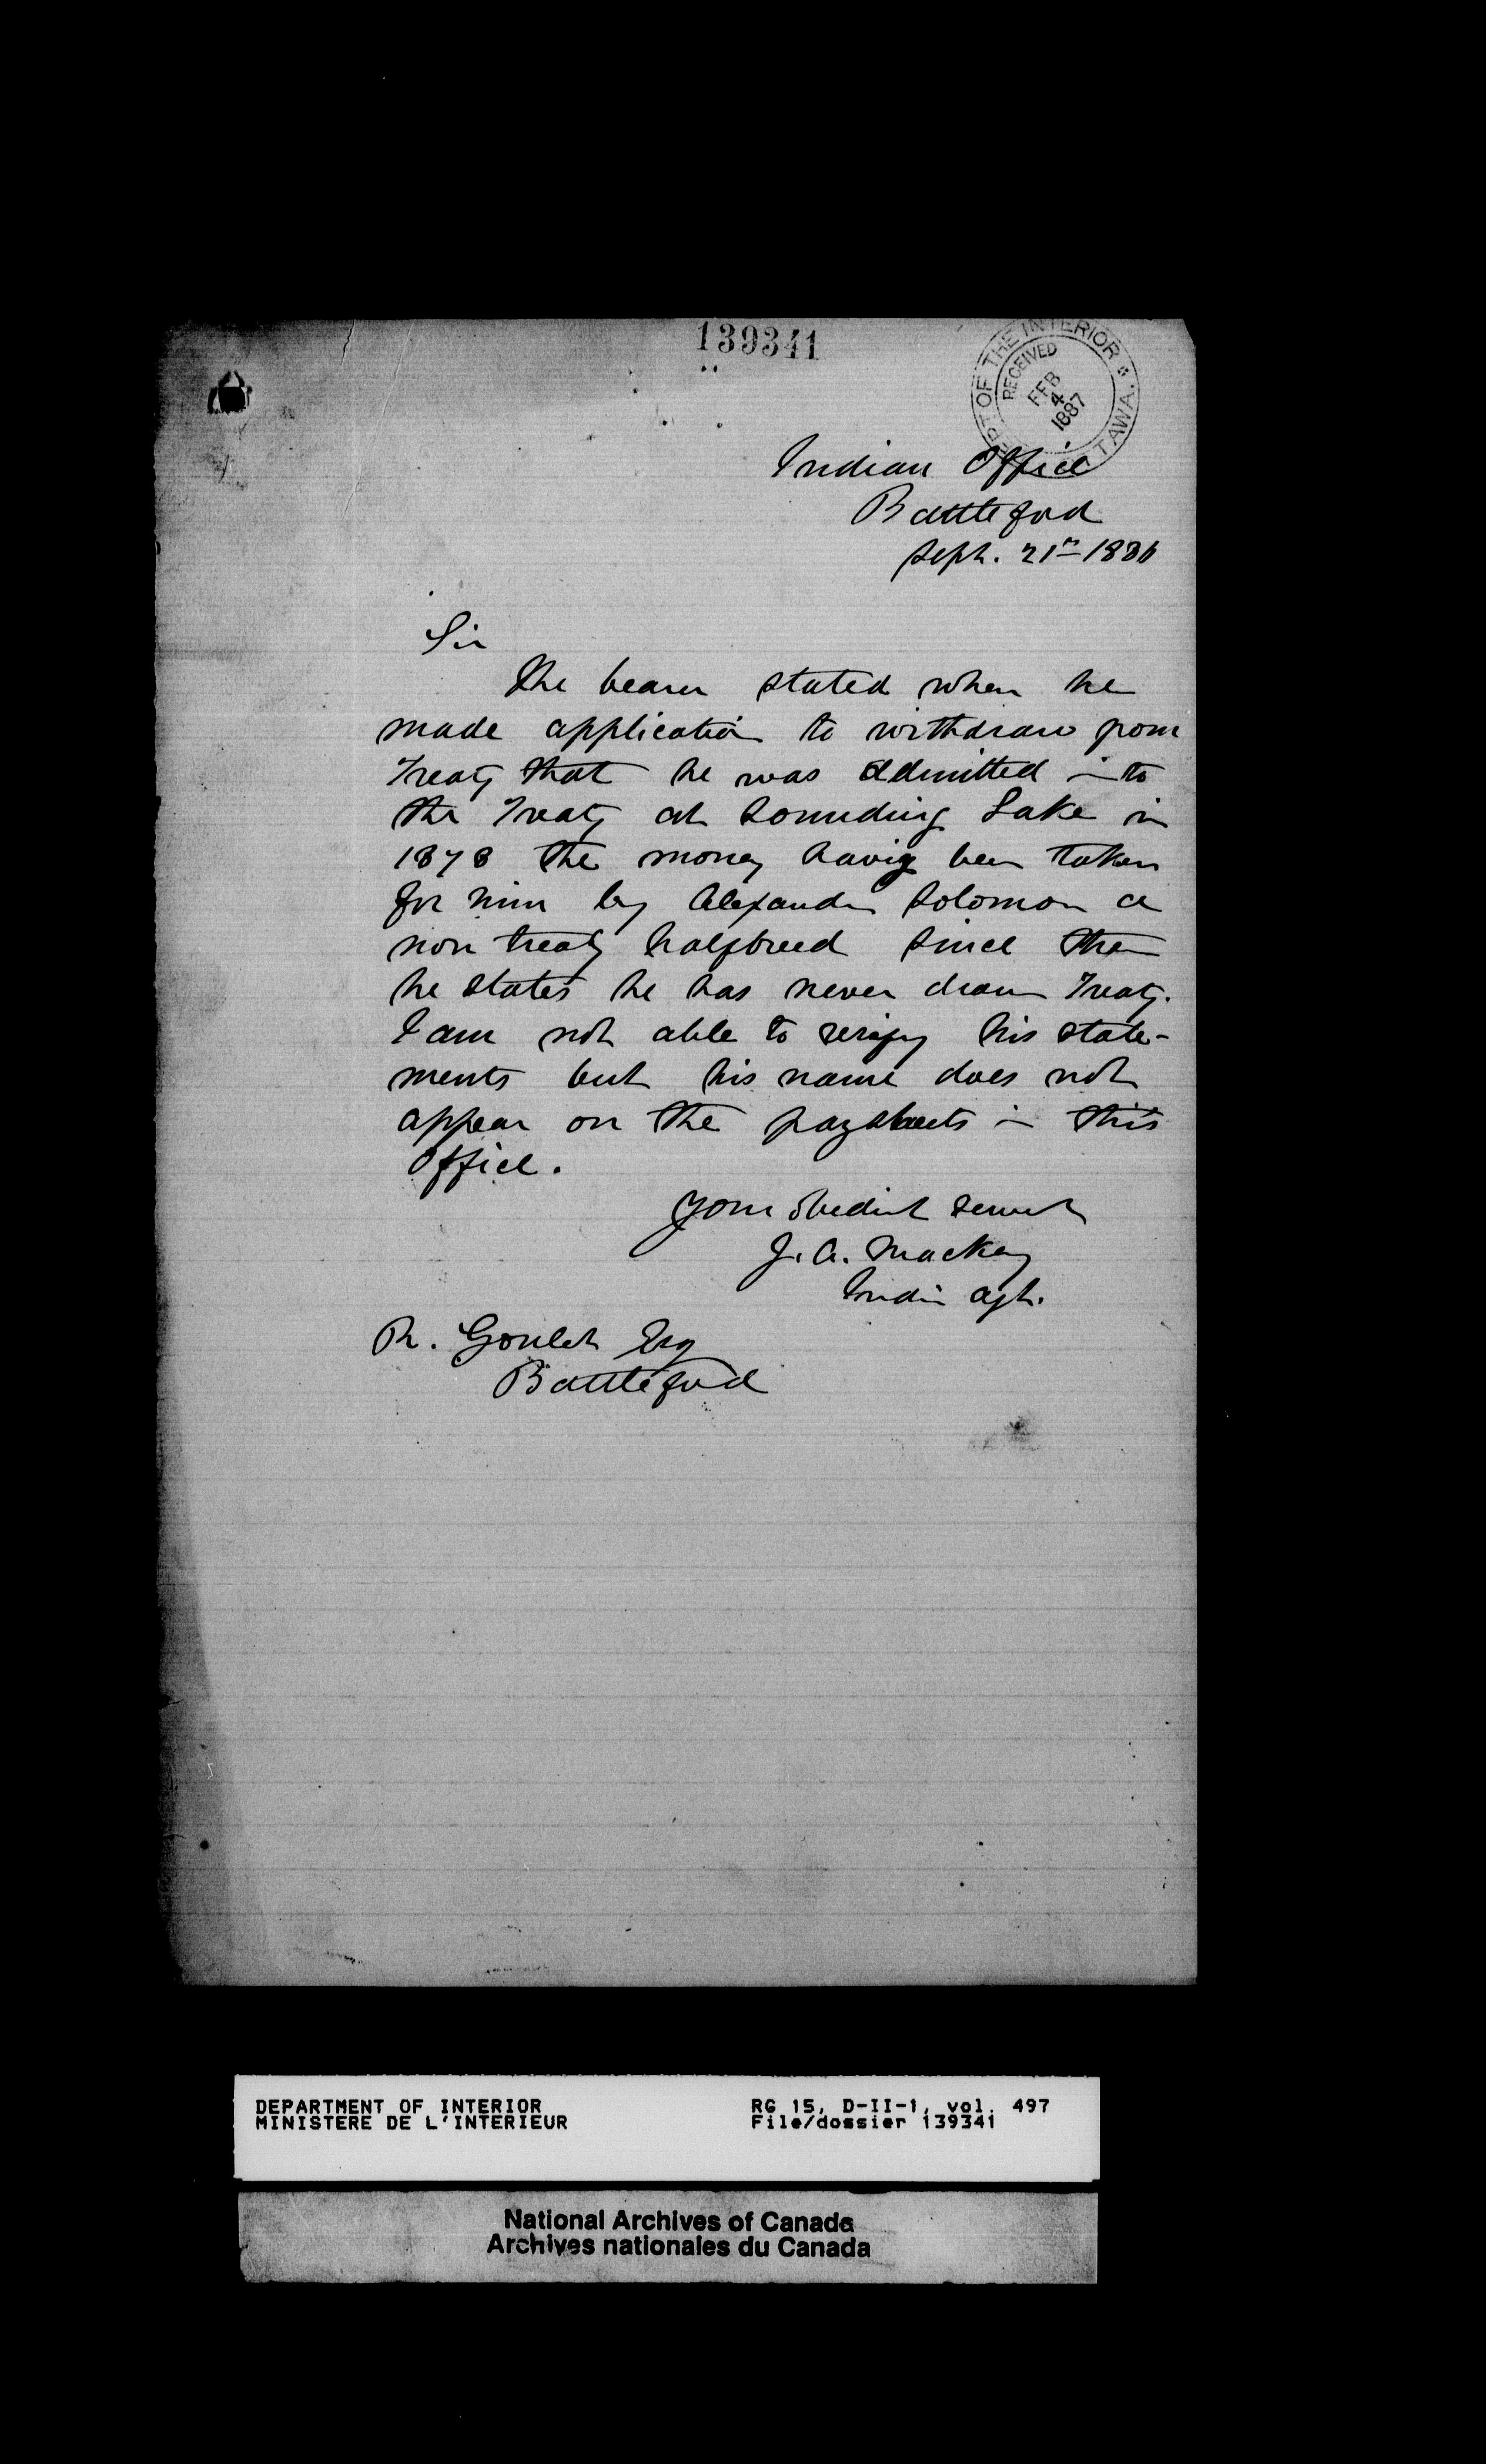 139341
DEPT OF THE INTERIOR OTTAWA.
RECEIVED
FEB
4
1887
Indian Office
Battleford
Sept. 21st 1886
Sir
The bearer stated when he
made application to withdraw from
Treaty that he was admitted into
the Treaty at Sounding Lake in
1878 the money having been taken
for him by Alexander Solomon a
non treaty halfbreed since then
he states he has never drawn Treaty.
I am not able to verify his state-
ments but his name does not
appear on the paysheets in this
Office.
Your obedient servant
J. A. Mackay
Indian Agt.
R. Goulet Esq
Battleford
DEPARTMENT OF INTERIOR
MINISTERE DE L'INTERIEUR
RG 15, D-II-1, vol. 497
File/dossier 139341
National Archives of Canada
Archives nationales du Canada